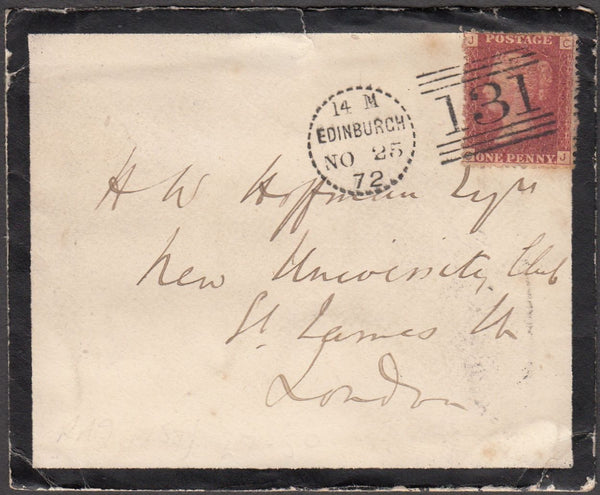 J POSTAGE C
131
ONE PENNY J
14 M
EDINBURGH
NO 25
72
H W Hoffman Esqre
New University Club
St. James St
London